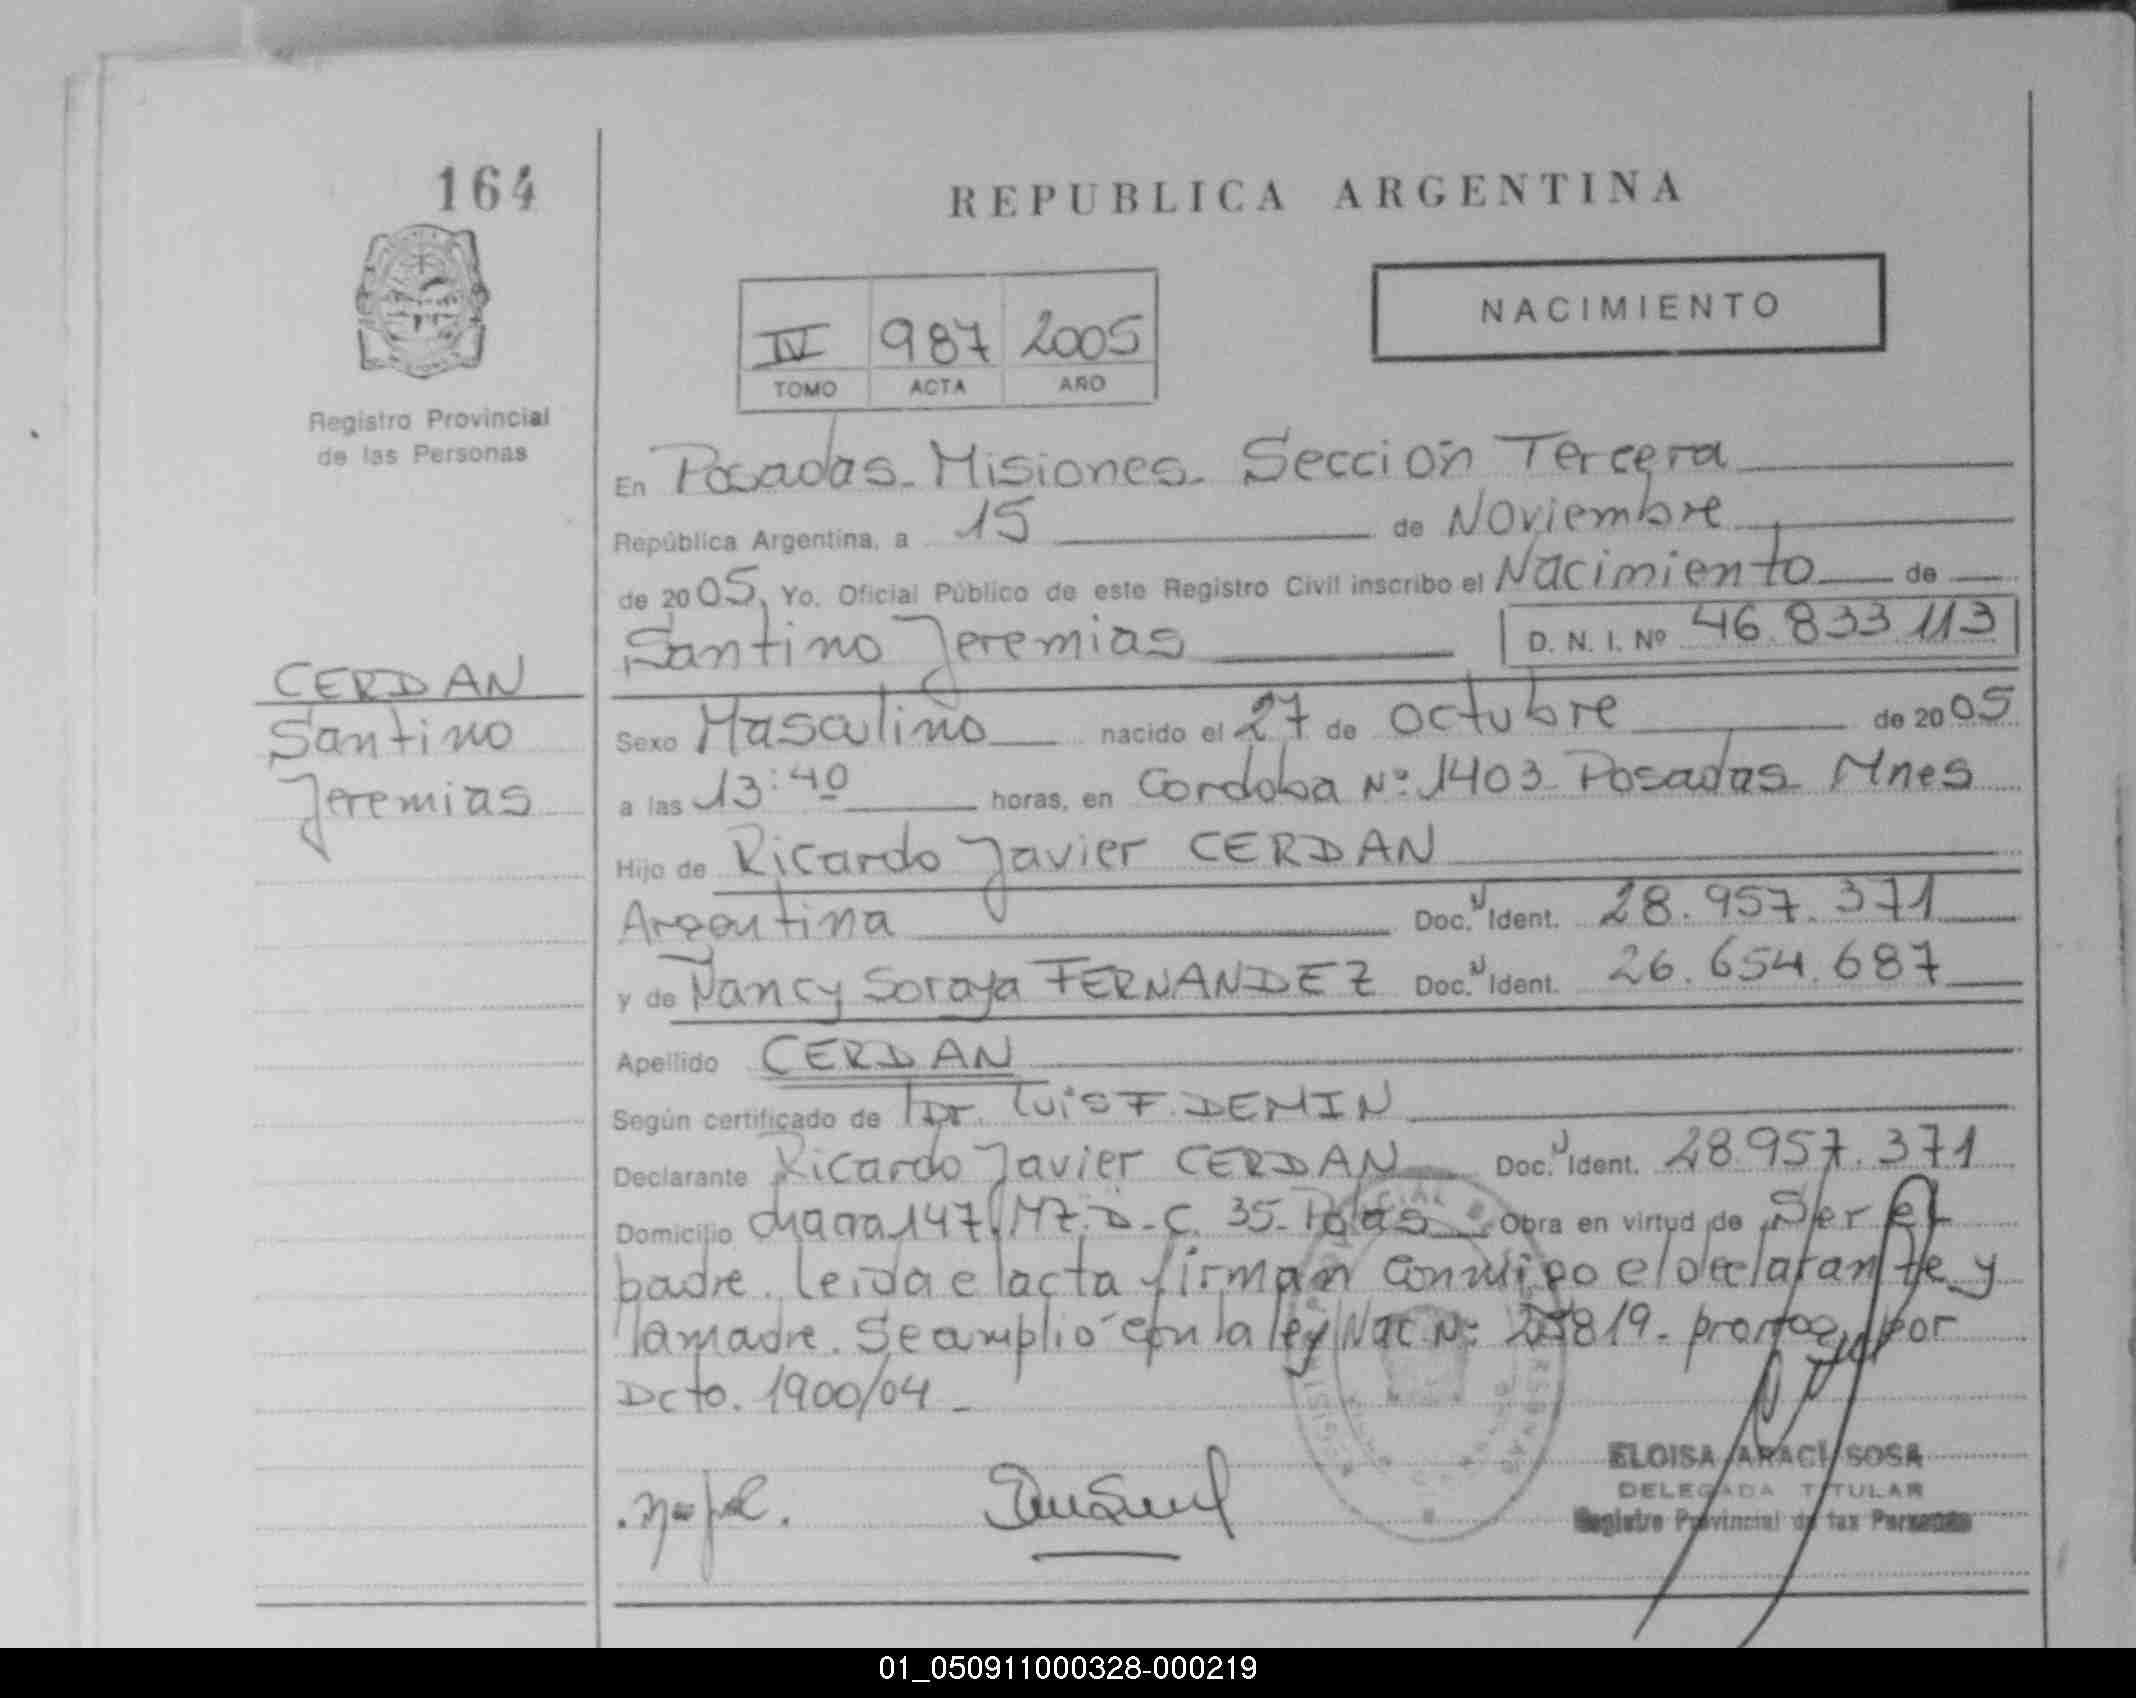 164
REPUBLICA ARGENTINA
NACIMIENTO
IV 987 2005
TOMO ACTA AÑO
Registro Provincial
de las Personas
En Posadas - Misiones - Sección Tercera
República Argentina, a 15 de Noviembre
de 2005, Yo. Oficial Público de este Registro Civil inscribo el Nacimiento de
Santino Jeremias D. N. I. Nº 46.833.113
CERDAN
Santino
Jeremias
Sexo Masculino nacido el 27 de octubre de 2005
a las 13:40 horas, en Cordoba Nº: 1403 - Posadas - Mnes
Hijo de Ricardo Javier CERDAN
Argentina Doc. Ident. 28.957.371
y de Nancy Soraya FERNANDEZ Doc. Ident. 26.654.687
Apellido CERDAN
Según certificado de Dr. Luis F. DEMIN
Declarante Ricardo Javier CERDAN Doc. Ident. 28.957.371
Domicilio chacra 147, MZ. D - C. 35 - Pdas Obra en virtud de Ser el
padre. Leida el acta firman conmigo el declarante y
la madre. Se amplió con la ley Nac Nº: 25819 - por
Dcto. 1900/04 -
ELOISA ARACI SOSA
DELEGADA TITULAR
Registro Provincial de las Personas
01_050911000328-000219